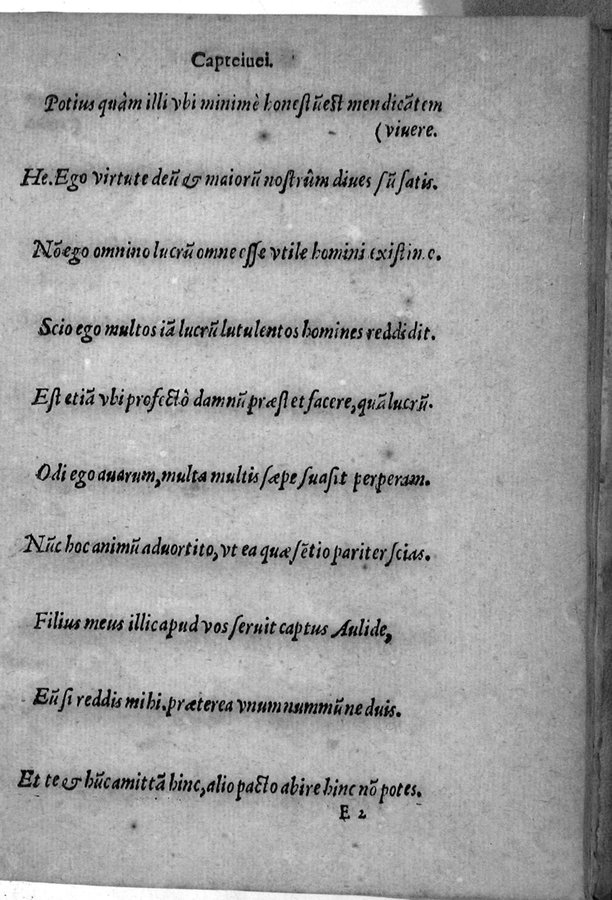 Capteiuei.
Potius quàm illi vbi minimè honestũ est mendicãtem
(viuere.
He. Ego virtute deũ & maiorũ nostrûm diues sũ satis.
Nõ ego omnino lucrũ omne esse vtile homini existimo.
Scio ego multos iã lucrũ lutulentos homines reddidit.
Est etiã vbi profectò damnũ præstet facere, quã lucrũ.
Odi ego auarum, multa multis sæpe suasit perperam.
Nũc hoc animũ aduortito, vt ea quæ sẽtio pariter scias.
Filius meus illic apud vos seruit captus Aulide,
Eũ si reddis mihi. præterea vnum nummũ ne duis.
Et te & hũc amittã hinc, alio pacto abire hinc nõ potes.
E 2